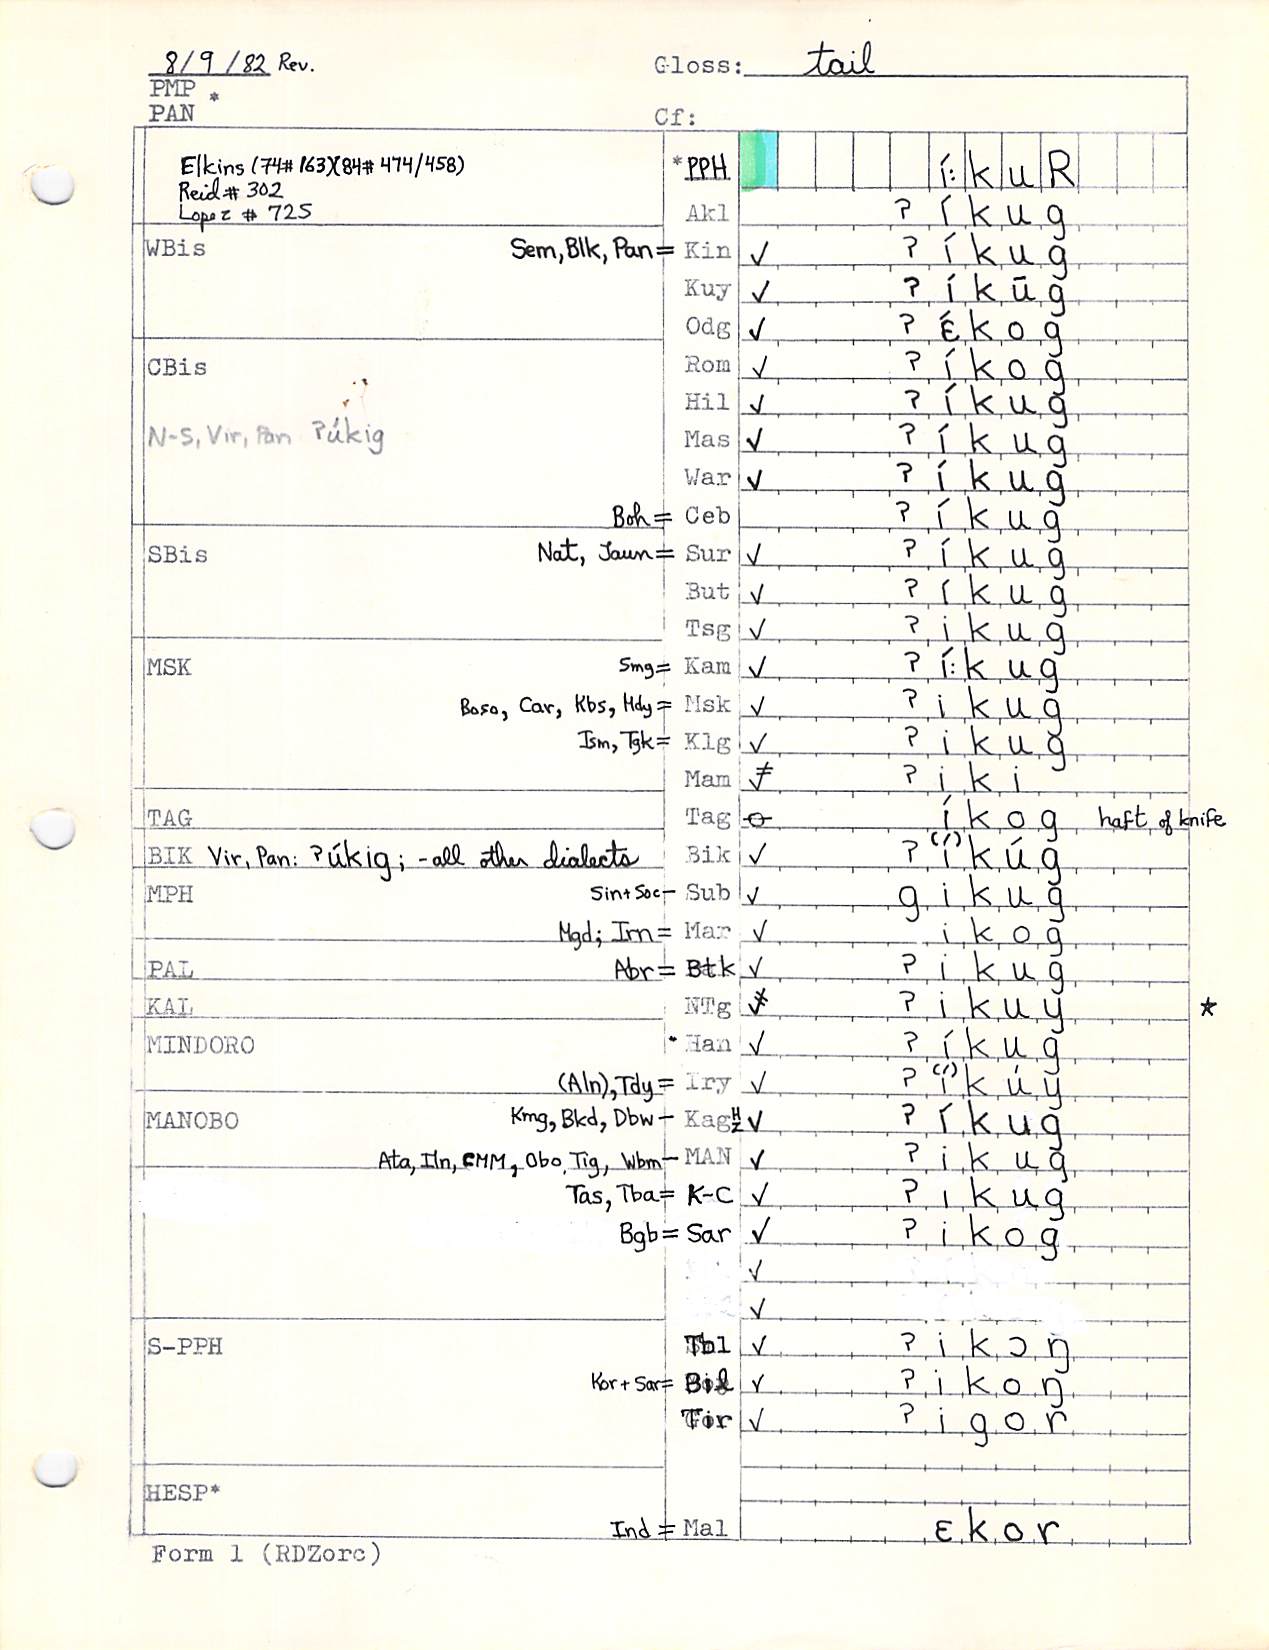 8/9/82 Rev. Gloss: tail
PMP *
PAN Cf:
Elkins (74# 163)(84# 474/458) *PPH í:kuR
Reid # 302
Lopez # 725 Akl ʔíkug
WBis Sem, Blk, Pan = Kin ✓ ʔíkug
Kuy ✓ ʔíkūg
Odg ✓ ʔɛ́kog
CBis Rom ✓ ʔíkog
Hil ✓ ʔíkug
N-S, Vir, Pan ʔúkig Mas ✓ ʔíkug
War ✓ ʔíkug
Boh = Ceb ʔíkug
SBis Nat, Jaun = Sur ✓ ʔíkug
But ✓ ʔíkug
Tsg ✓ ʔikug
MSK Smg = Kam ✓ ʔí:kug
Boso, Car, Kbs, Mdy = Msk ✓ ʔikug
Ism, Tgk = Klg ✓ ʔikug
Mam ≠ ʔiki
TAG Tag íkog haft of knife
BIK Vir, Pan: ʔúkig; -all other dialects Bik ✓ ʔi(´)kúg
MPH Sin+Soc- Sub ✓ gikug
Mgd; Irn = Mar ✓ ikog
PAL Abr = Btk ✓ ʔikug
KAL NTg ʔikuy ★
MINDORO Han ✓ ʔíkug
(Aln), Tdy = Iry ✓ ʔi(´)kúy
MANOBO Kmg, Bkd, Dbw - Kag ✓ ʔíkug
Ata, Iln, CMM, Obo, Tig, Wbm - MAN ✓ ʔikug
Tas, Tba = K-C ✓ ʔikug
Bgb = Sar ✓ ʔikog
✓
✓
S-PPH Tbl ✓ ʔikɔŋ
Kor + Sar = Bil ✓ ʔikoŋ
Tir ✓ ʔigor
HESP*
Ind = Mal ɛkor
Form 1 (RDZorc)